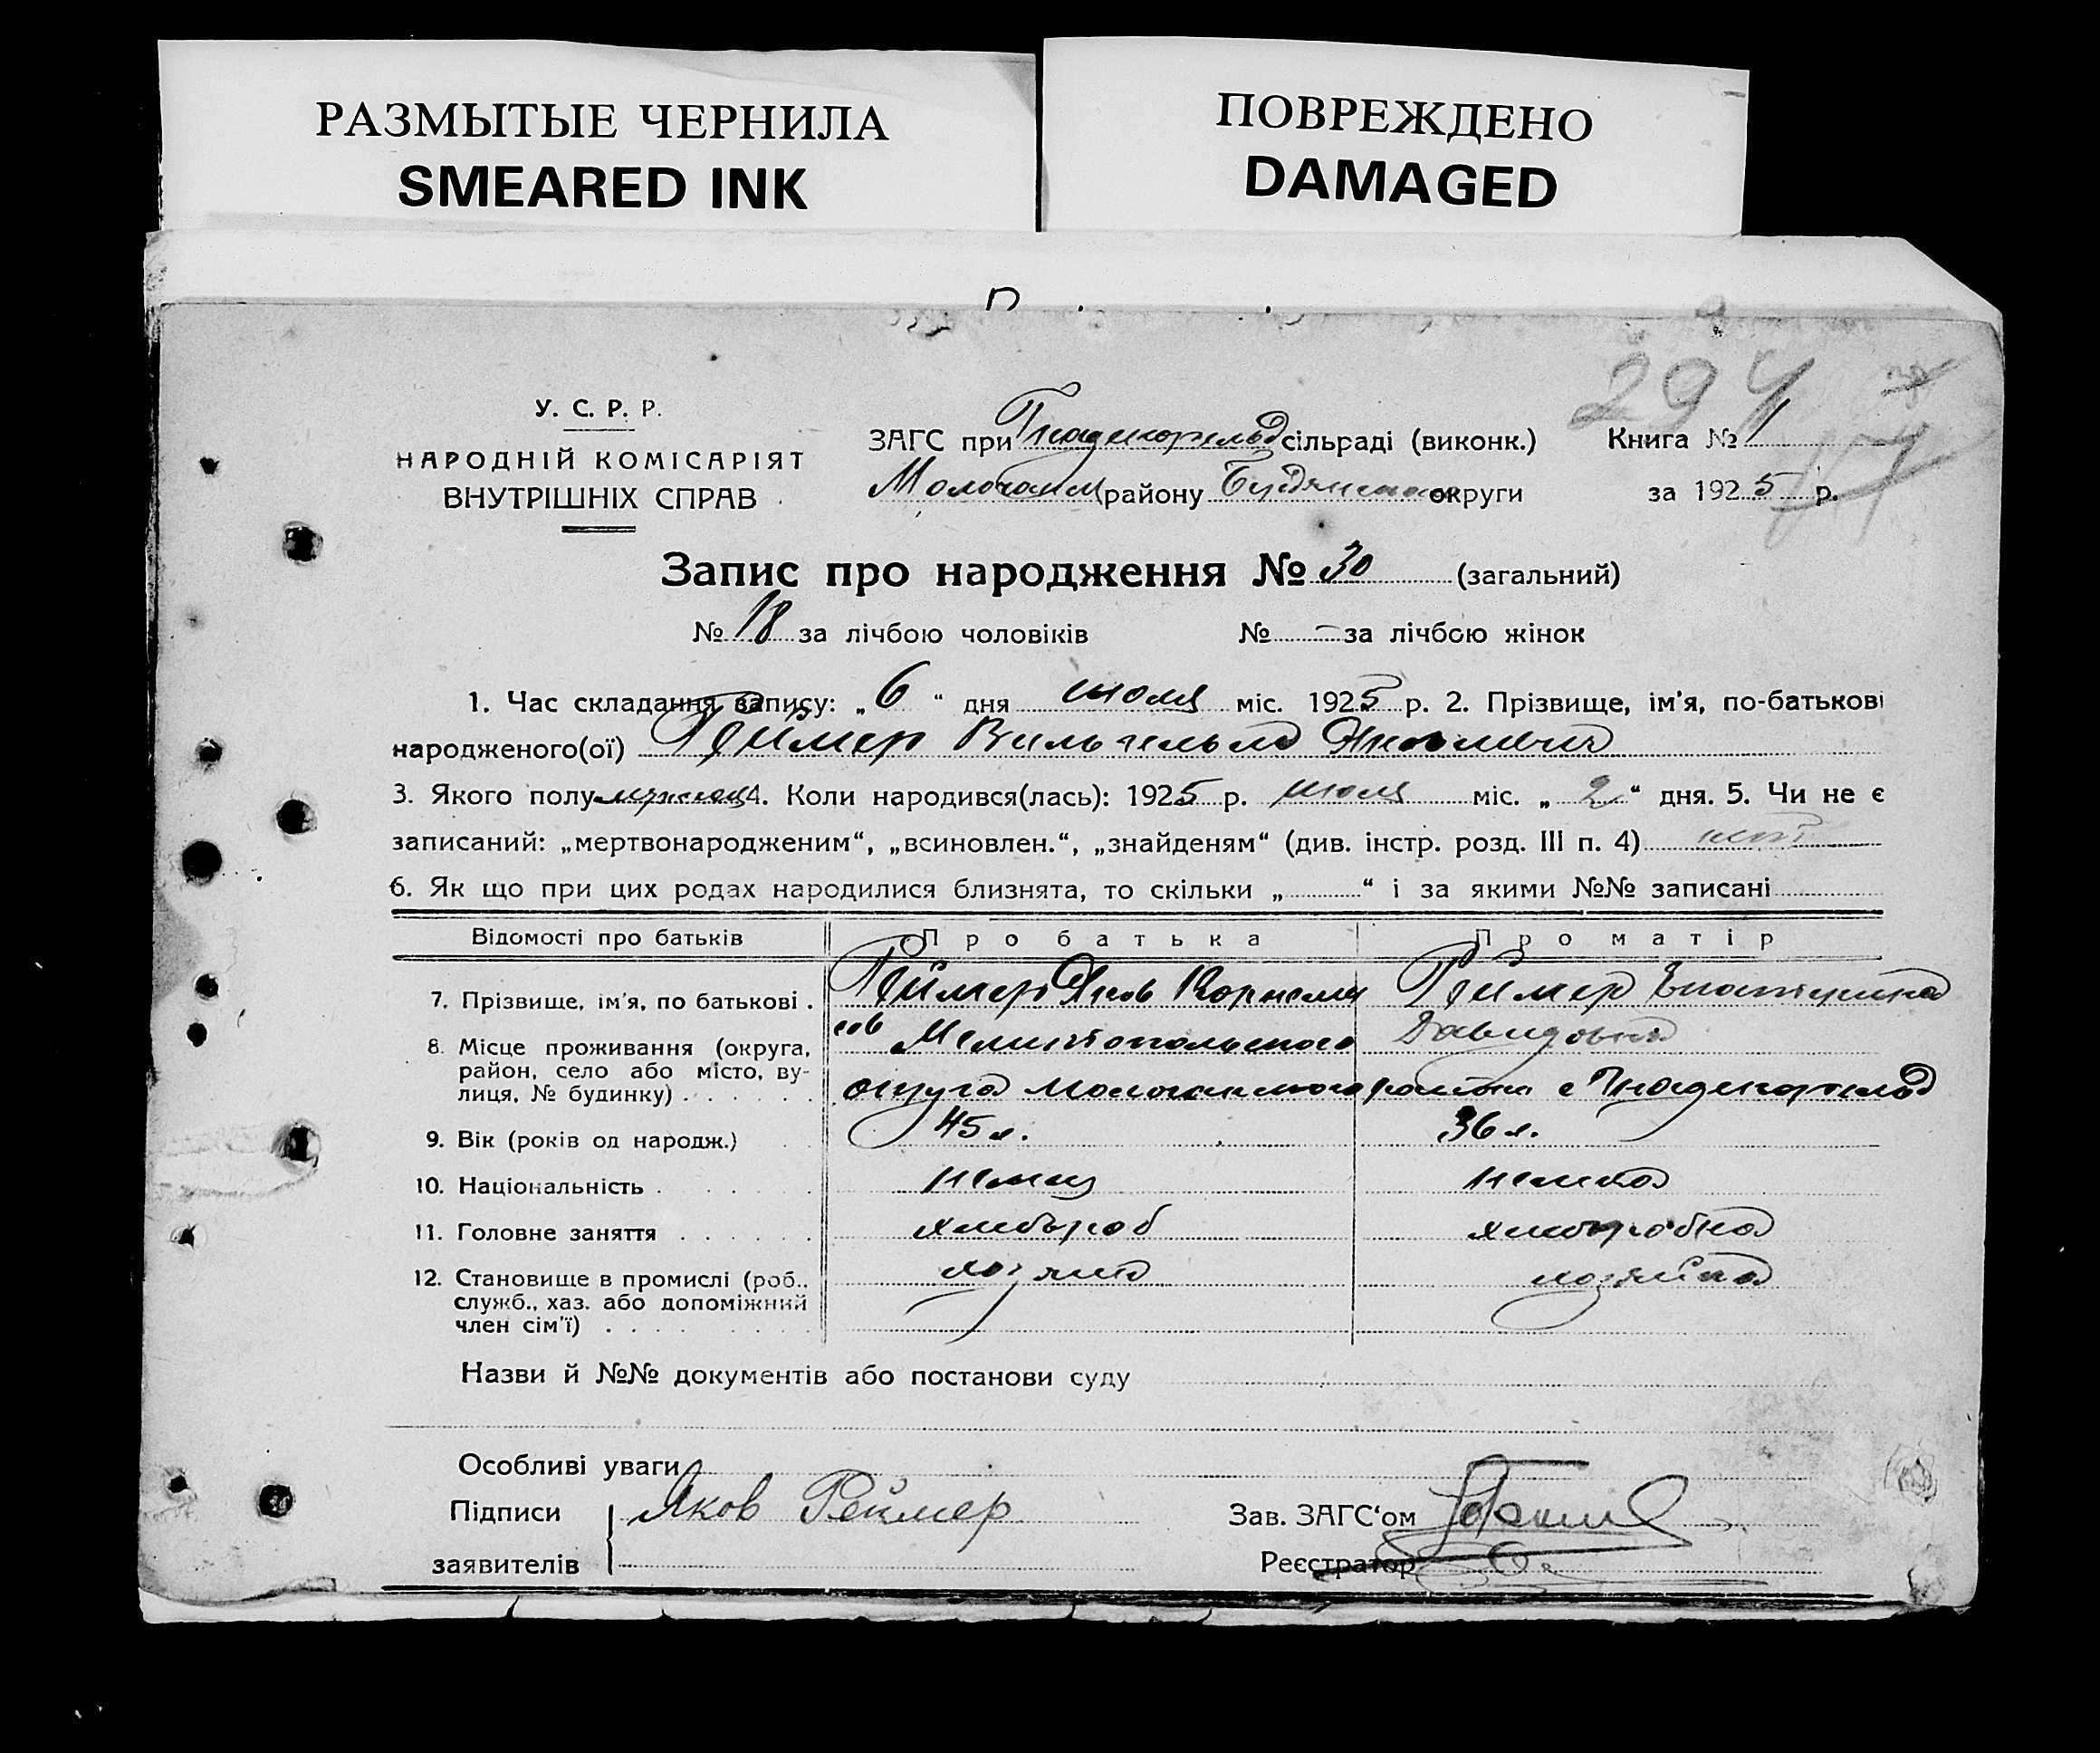 РАЗМЫТЫЕ ЧЕРНИЛА
SMEARED INK
ПОВРЕЖДЕНО
DAMAGED
294
У. С. Р. Р.
НАРОДНІЙ КОМІСАРІЯТ
ВНУТРІШНІХ СПРАВ
ЗАГС при Гнаденфельд сільраді (виконк.) Книга № 1
Молочанск району округи за 1925 р.
Запис про народження № 30 (загальний)
№ 18 за лічбою чоловіків № – за лічбою жінок
1. Час складання запису: „ 6 “ дня июля міс. 1925 р. 2. Прізвище, ім'я, по-батькові
народженого(ої) Реймер Вильгельм Яковлевич
3. Якого полу мужской 4. Коли народився(лась): 1925 р. июля міс. „ 2 “ дня. 5. Чи не є
записаний: „мертвонародженим“, „всиновлен.“, „знайденям“ (див. інстр. розд. III п. 4) нет
6. Як що при цих родах народилися близнята, то скільки „ “ і за якими №№ записані
Відомості про батьків Про батька Про матір
7. Прізвище, ім'я, по батькові . Реймер Яков Корнелиев Реймер Екатерина Давидовна
8. Місце проживання (округа, район, село або місто, вулиця, № будинку) . . . . . . Мелитопольского округа Молочанского района с Гнаденфельд
9. Вік (років од народж.) 45 л. 36 л.
10. Національність . . . . . немец немка
11. Головне заняття . . . . . . хлебороб хлебробка
12. Становище в промислі (роб., служб., хаз. або допоміжний член сім'ї) . . . . . . . . хозяин хозяйка
Назви й №№ документів або постанови суду
Особливі уваги
Підписи заявителів Яков Реймер
Зав. ЗАГС‘ом
Реєстратор